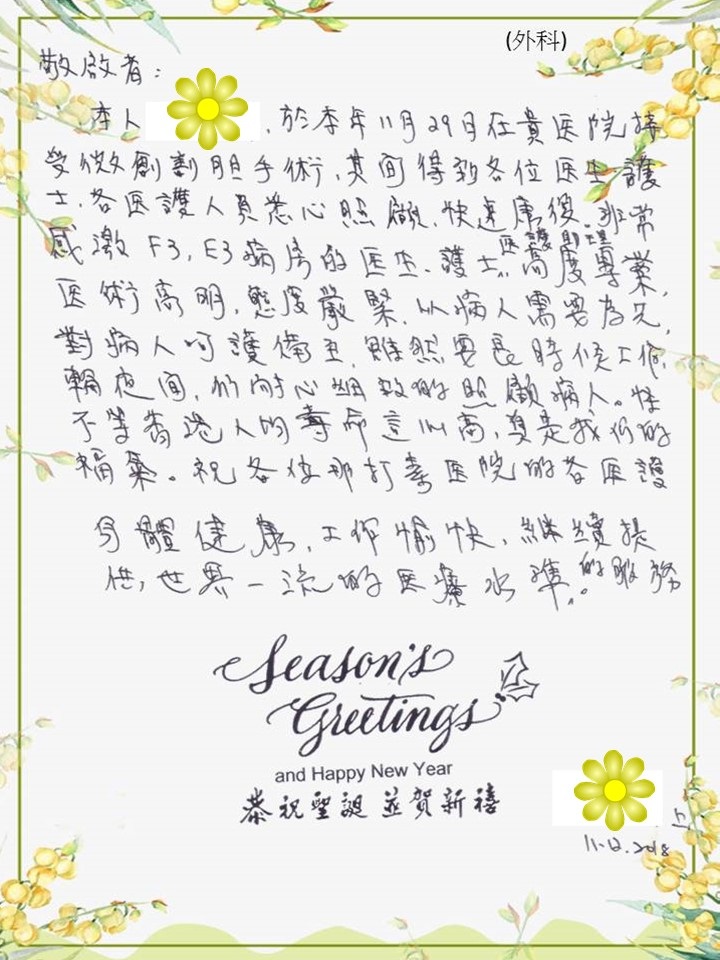 (外科)
敬啟者：
本人，於本年11月29日在貴医院接
受微創割胆手術，其间得到各位医生護
士，各医護人員悉心照顧，快速康復。非常
感激F3，E3病房的医生、護士、医護助理高度專業，
医術高明，態度嚴緊，以病人需要為先，
對病人呵護備至，雖然要長時候工作，
輪夜间，仍耐心細致的照顧病人。怪
不等香港人的壽命這么高，真是我们的
福氣。祝各位那打素医院的各医護
身體健康，工作愉快，継續提
供，世界一流的医療水準的服務。
Season's
Greetings
and Happy New Year
恭祝聖誕 並賀新禧
上
11-12.2018